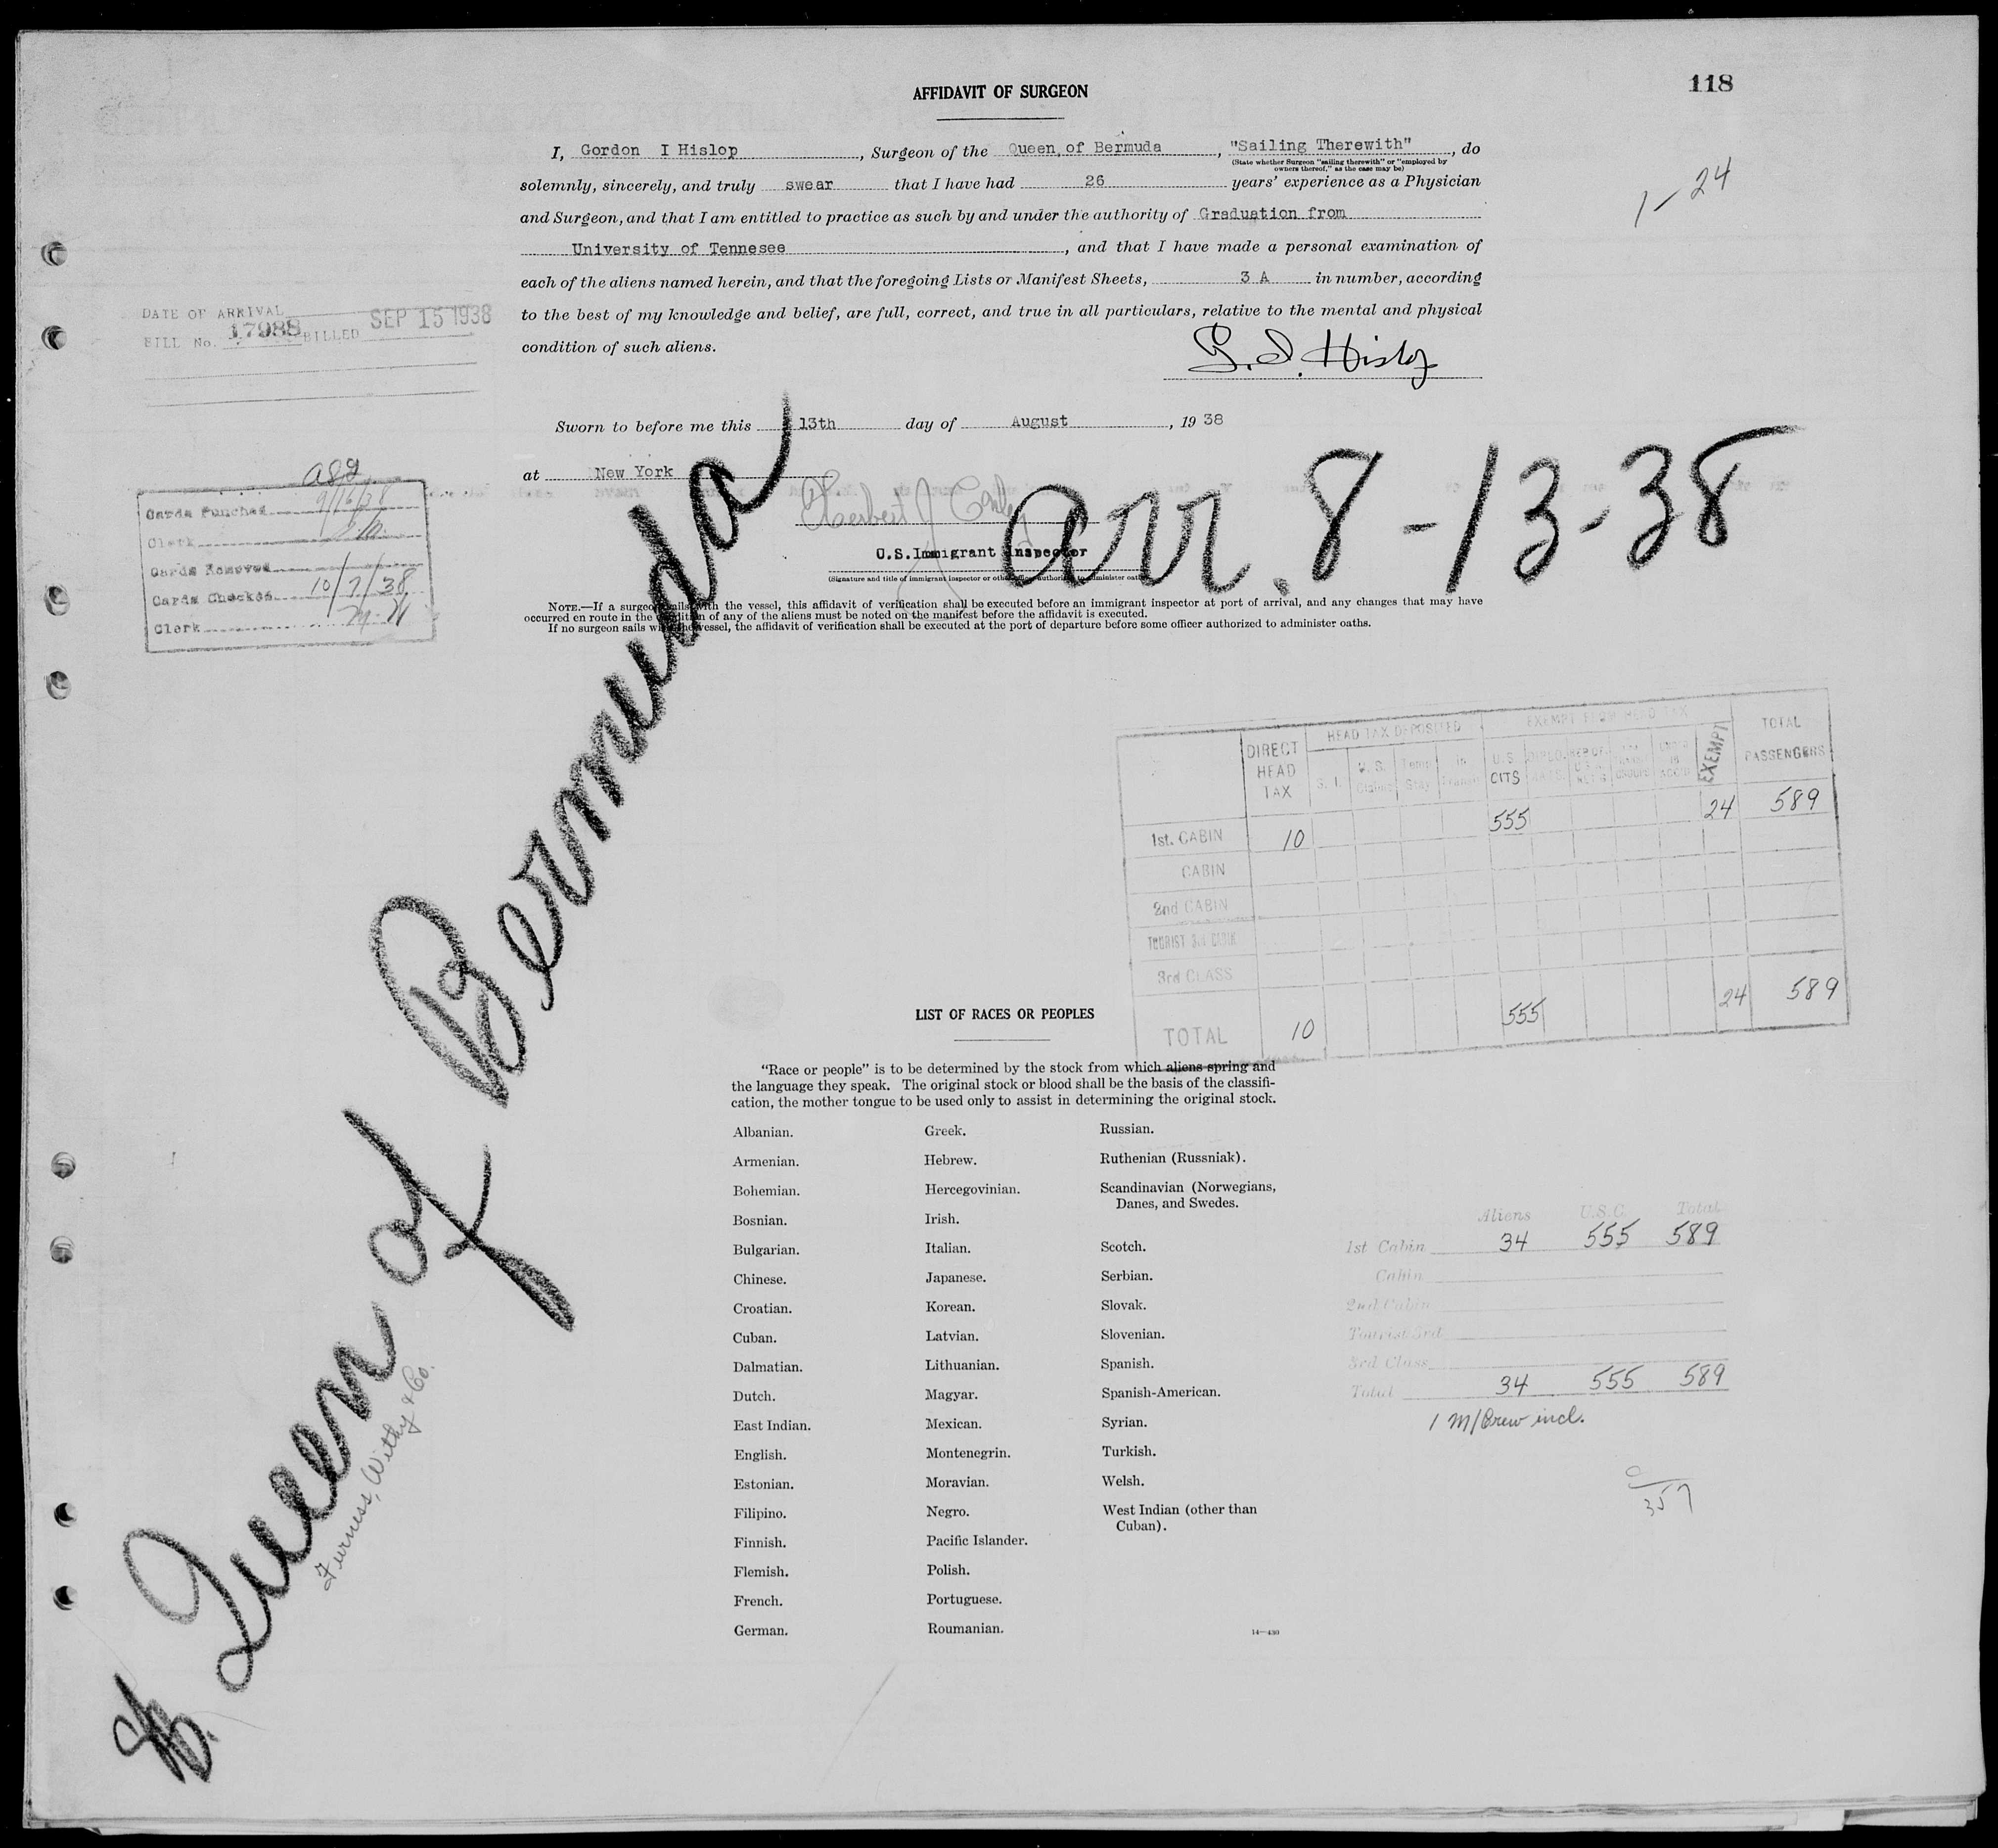 118
AFFIDAVIT OF SURGEON
I, Gordon I Hislop, Surgeon of the Queen of Bermuda, "Sailing Therewith", do
(State whether Surgeon "sailing therewith" or "employed by
owners thereof," as the case may be)
solemnly, sincerely, and truly swear that I have had 26 years' experience as a Physician
and Surgeon, and that I am entitled to practice as such by and under the authority of Graduation from
University of Tennesee, and that I have made a personal examination of
each of the aliens named herein, and that the foregoing Lists or Manifest Sheets, 3 A in number, according
to the best of my knowledge and belief, are full, correct, and true in all particulars, relative to the mental and physical
condition of such aliens.
G. I. Hislop
1-24
DATE OF ARRIVAL
BILL No. 17988 BILLED SEP 15 1938
Sworn to before me this 13th day of August, 19 38
at New York
Herbert J
U.S. Immigrant Inspector
(Signature and title of immigrant inspector or other officer authorized to administer oaths)
arr. 8-13-38
Cards Punched 9/16/38
Clerk
Cards Removed
Cards Checked 10/7/38
Clerk
NOTE.—If a surgeon sails with the vessel, this affidavit of verification shall be executed before an immigrant inspector at port of arrival, and any changes that may have
occurred en route in the condition of any of the aliens must be noted on the manifest before the affidavit is executed.
If no surgeon sails with the vessel, the affidavit of verification shall be executed at the port of departure before some officer authorized to administer oaths.
Queen of Bermuda
Furness, Withy & Co.
HEAD TAX DEPOSITED EXEMPT FROM HEAD TAX TOTAL
DIRECT HEAD TAX S. I. U.S. Temp Stay In U.S. CITS EXEMPT PASSENGERS
1st. CABIN 10 555 24 589
CABIN
2nd CABIN
TOURIST 3rd CABIN
3rd CLASS
TOTAL 10 555 24 589
LIST OF RACES OR PEOPLES
"Race or people" is to be determined by the stock from which aliens spring and
the language they speak. The original stock or blood shall be the basis of the classifi-
cation, the mother tongue to be used only to assist in determining the original stock.
Albanian.
Armenian.
Bohemian.
Bosnian.
Bulgarian.
Chinese.
Croatian.
Cuban.
Dalmatian.
Dutch.
East Indian.
English.
Estonian.
Filipino.
Finnish.
Flemish.
French.
German.
Greek.
Hebrew.
Hercegovinian.
Irish.
Italian.
Japanese.
Korean.
Latvian.
Lithuanian.
Magyar.
Mexican.
Montenegrin.
Moravian.
Negro.
Pacific Islander.
Polish.
Portuguese.
Roumanian.
Russian.
Ruthenian (Russniak).
Scandinavian (Norwegians,
Danes, and Swedes.
Scotch.
Serbian.
Slovak.
Slovenian.
Spanish.
Spanish-American.
Syrian.
Turkish.
Welsh.
West Indian (other than
Cuban).
14—430
Aliens U.S.C. Total
1st Cabin 34 555 589
Cabin
2nd Cabin
Tourist 3rd
3rd Class
Total 34 555 589
1 M/Crew incl.
357